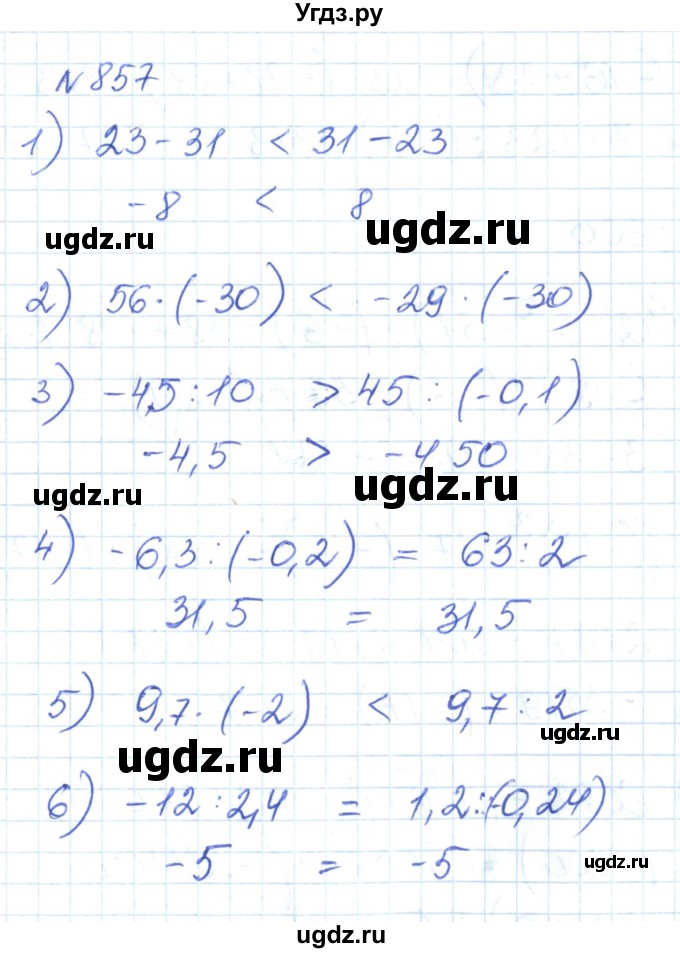 Угдз.ру
N 857
1) 23 - 31 < 31 - 23
-8 < 8
ugdz.ru ugdz.ru
2) 56 · (-30) < -29 · (-30)
3) -45 : 10 > 45 : (-0,1)
-4,5 > -450
ugdz.ru ugdz.ru
4) -6,3 : (-0,2) = 63 : 2
31,5 = 31,5
5) 9,7 · (-2) < 9,7 : 2
ugdz.ru ugdz.ru
6) -12 : 2,4 = 1,2 : (-0,24)
-5 = -5
ugdz.ru
ugdz.ru